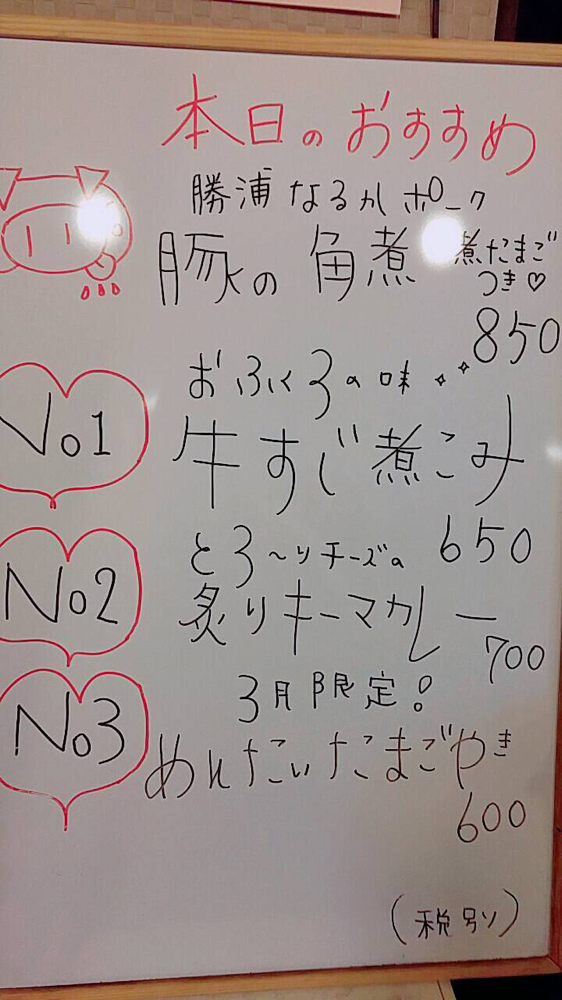 本日のおすすめ
勝浦なるかポーク
豚の角煮 煮たまごつき♡
850
No1
おふくろの味
牛すじ煮こみ
650
No2
とろ〜りチーズの
炙りキーマカレー
700
No3
3月限定!
めんたいたまごやき
600
(税別)